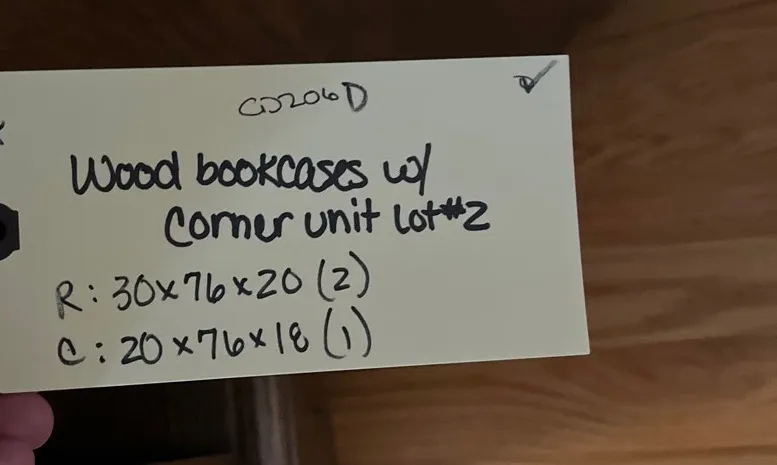 CD206D
Wood bookcases w/
Corner unit Lot #2
R: 30x76x20 (2)
C: 20x76x18 (1)